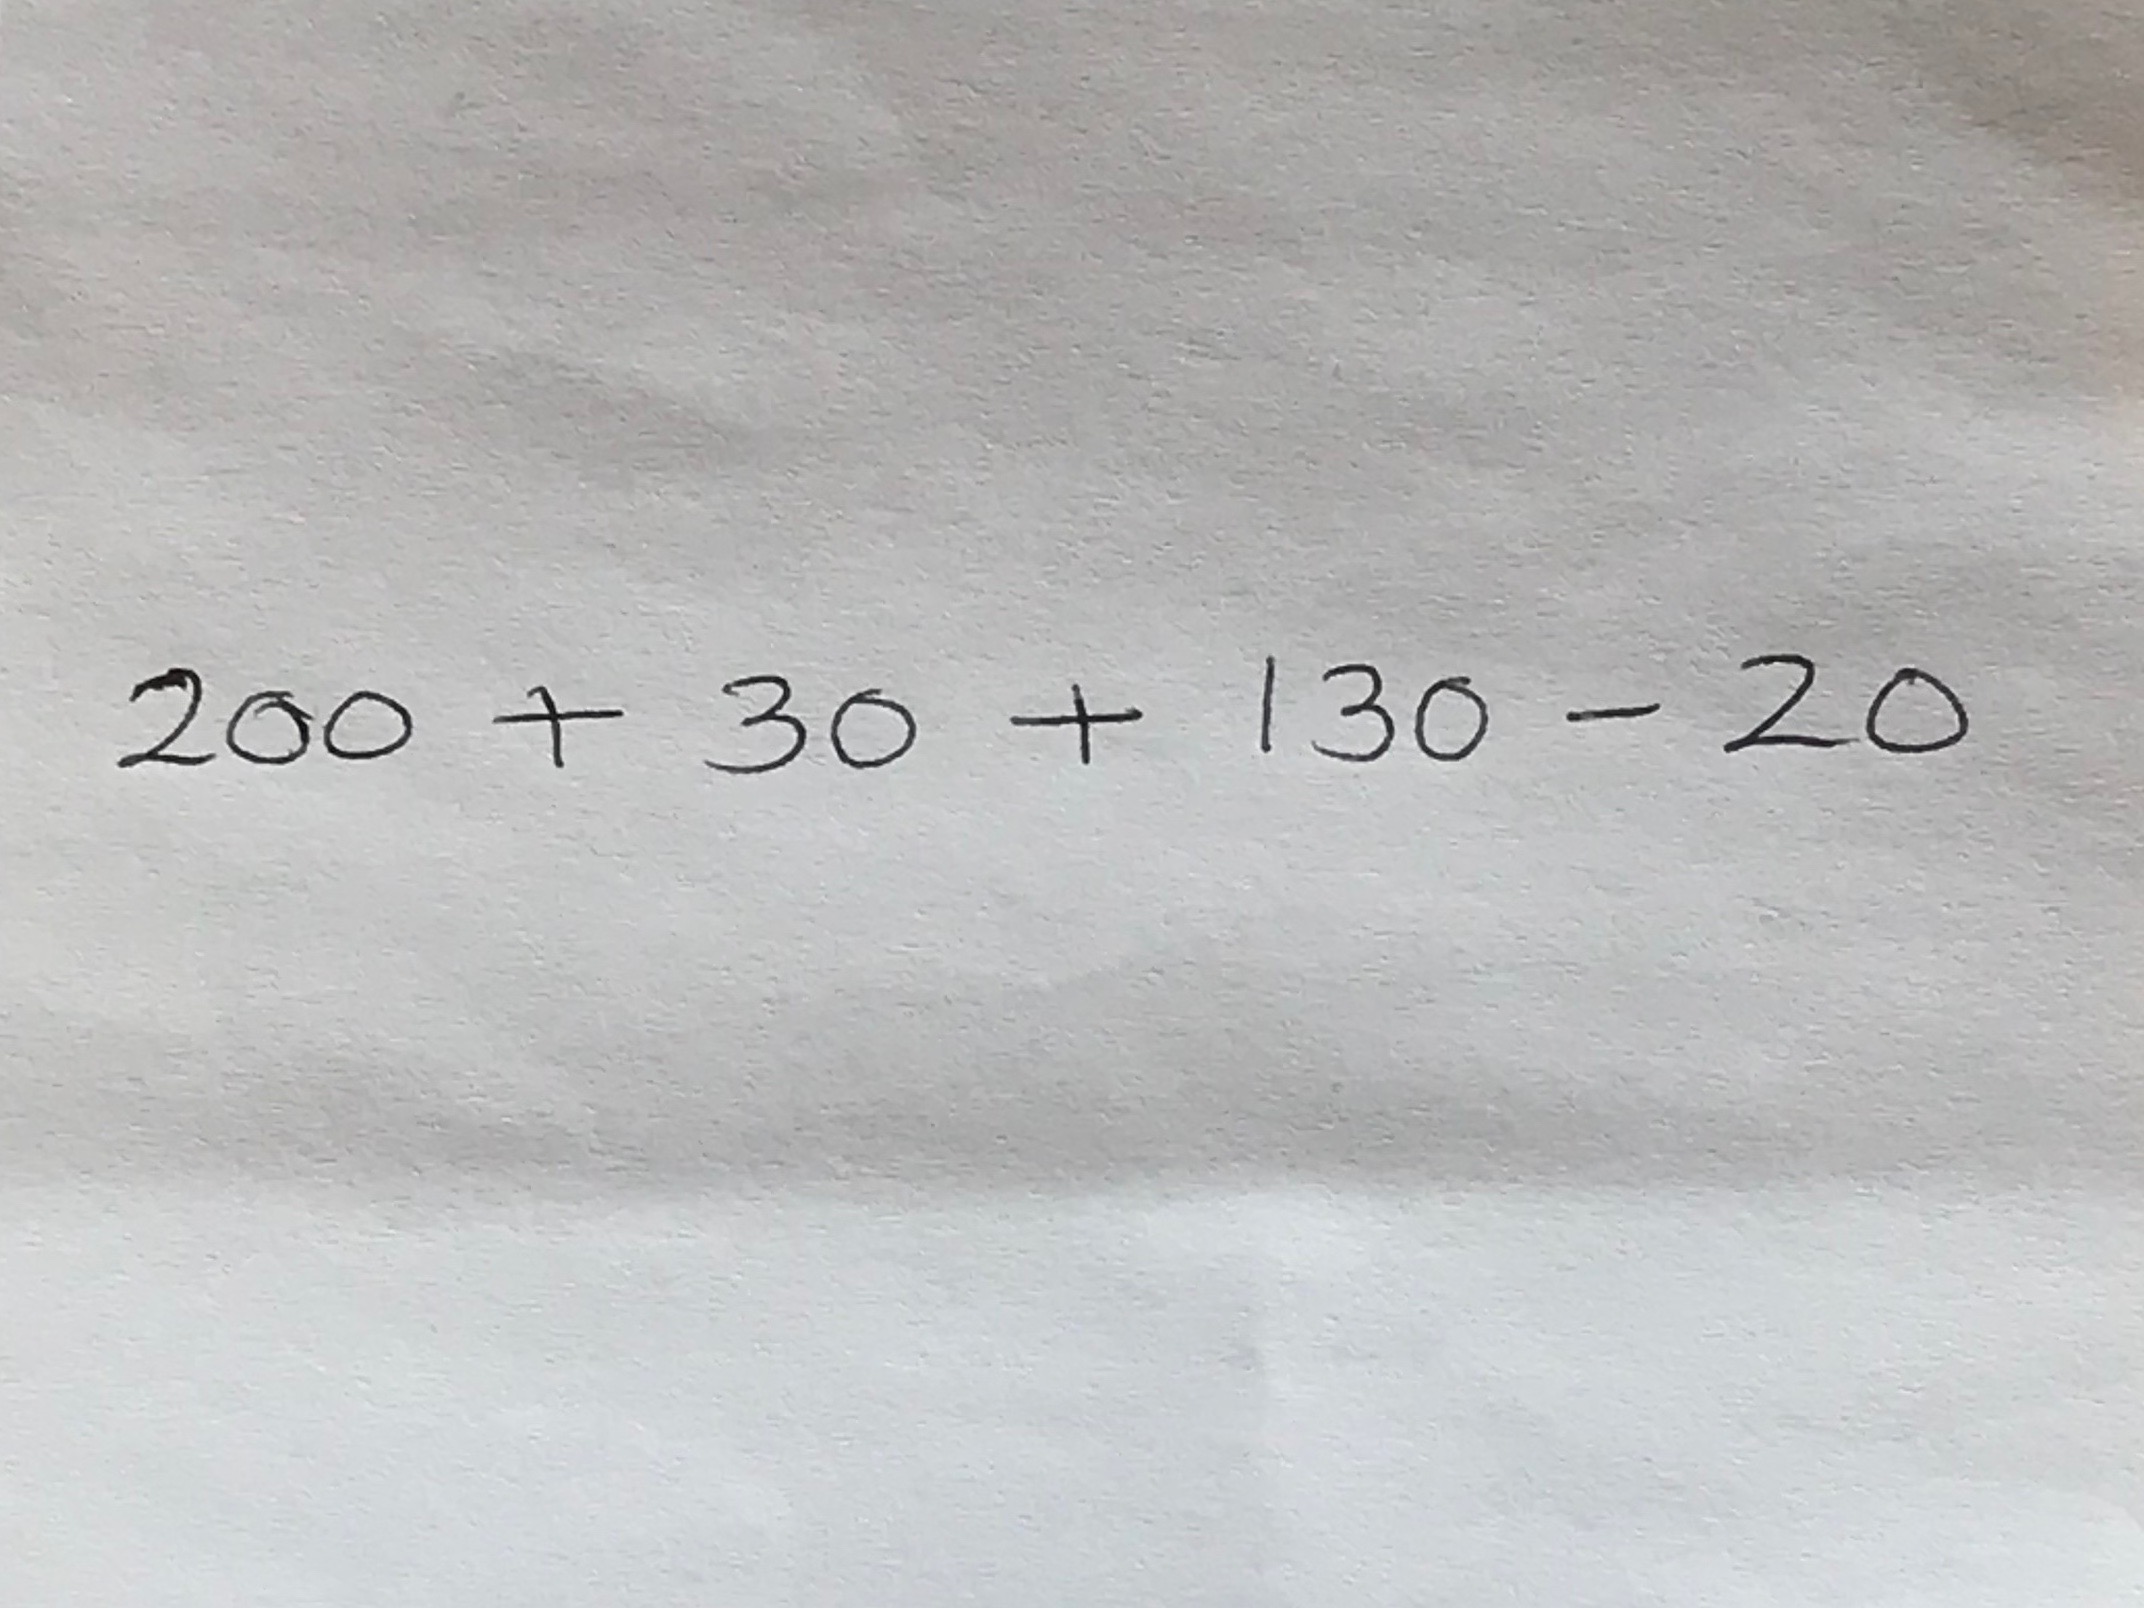 200 + 30 + 130 - 20